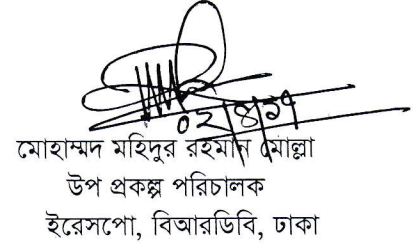 ০২/৪/২৭
মোহাম্মদ মহিদুর রহমান মোল্লা
উপ প্রকল্প পরিচালক
ইরেসপো, বিআরডিবি, ঢাকা